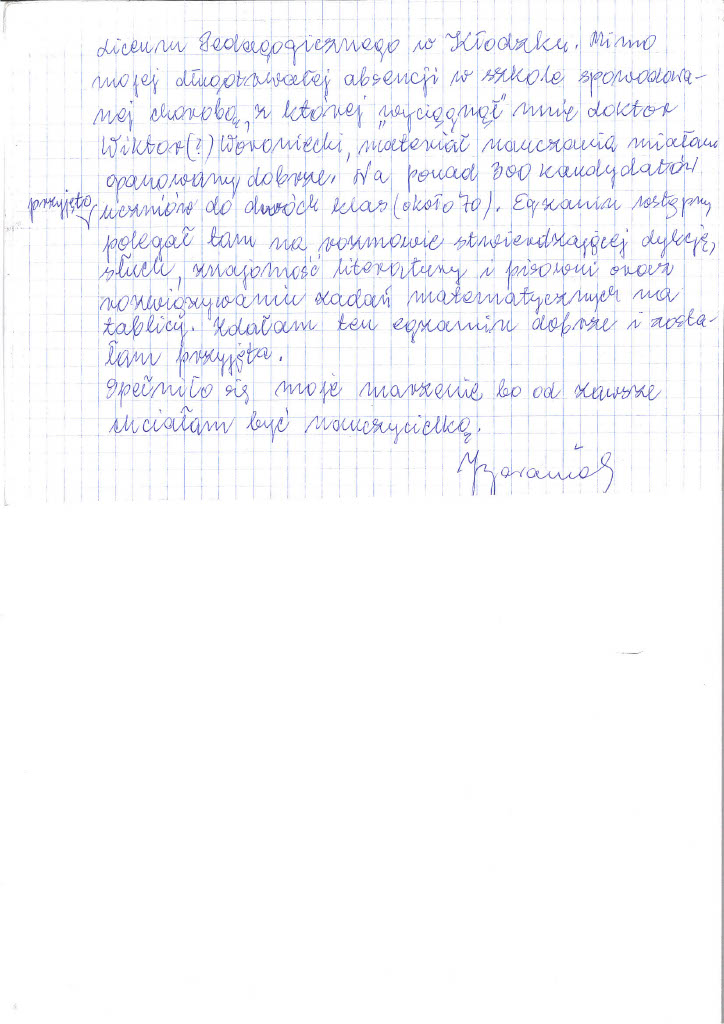 Liceum Pedagogicznego w Kłodzku. Mimo
mojej długotrwałej absencji w szkole spowodowa-
nej chorobą, z której „wyciągnął" mnie doktor
Wiktor(?) Woroniecki, materiał nauczania miałam
opanowany dobrze. Na ponad 300 kandydatów
przyjęto uczniów do dwóch klas (około 70). Egzamin wstępny
polegał tam na rozmowie stwierdzającej dykcję,
słuch, znajomość literatury i pisowni oraz
rozwiązywaniu zadań matematycznych na
tablicy. Zdałam ten egzamin dobrze i zosta-
łam przyjęta.
Spełniło się moje marzenie bo od zawsze
chciałam być nauczycielką.